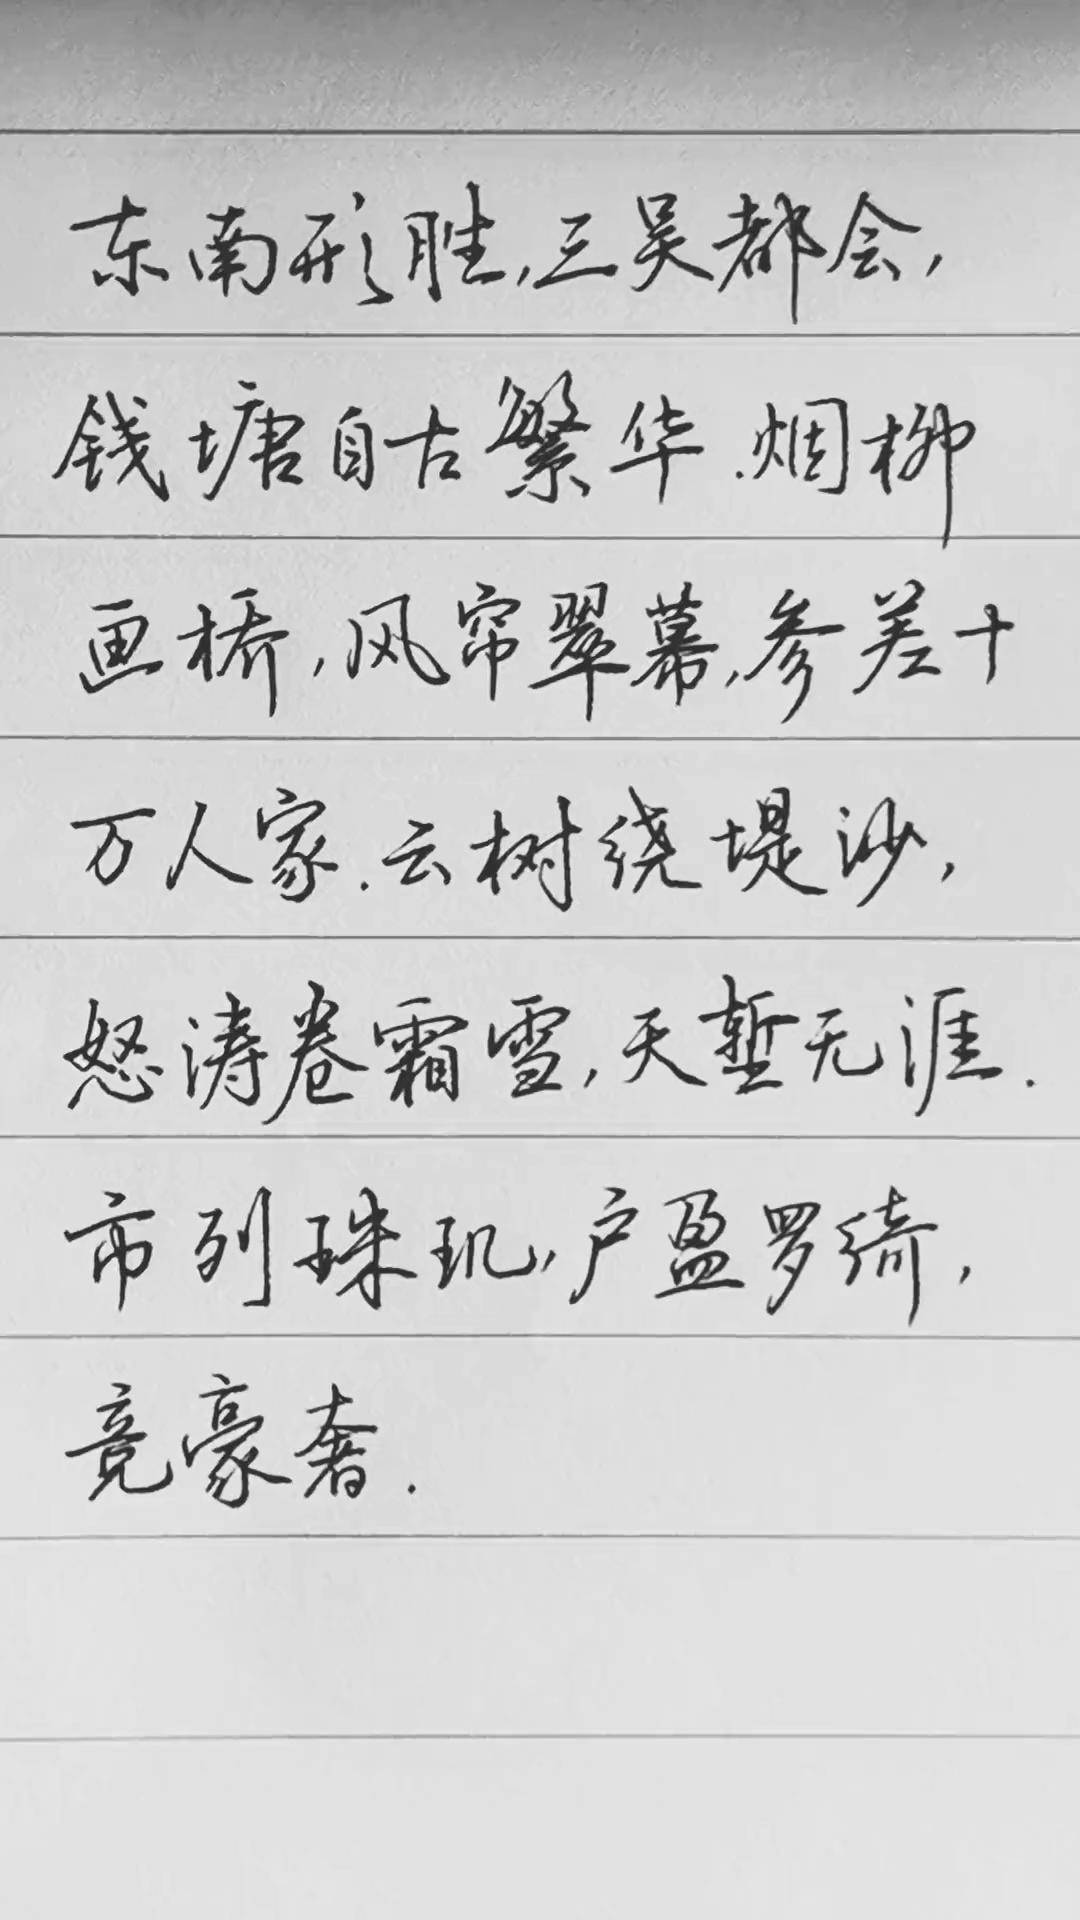 东南形胜,三吴都会,
钱塘自古繁华.烟柳
画桥,风帘翠幕,参差十
万人家.云树绕堤沙,
怒涛卷霜雪,天堑无涯.
市列珠玑,户盈罗绮,
竞豪奢.